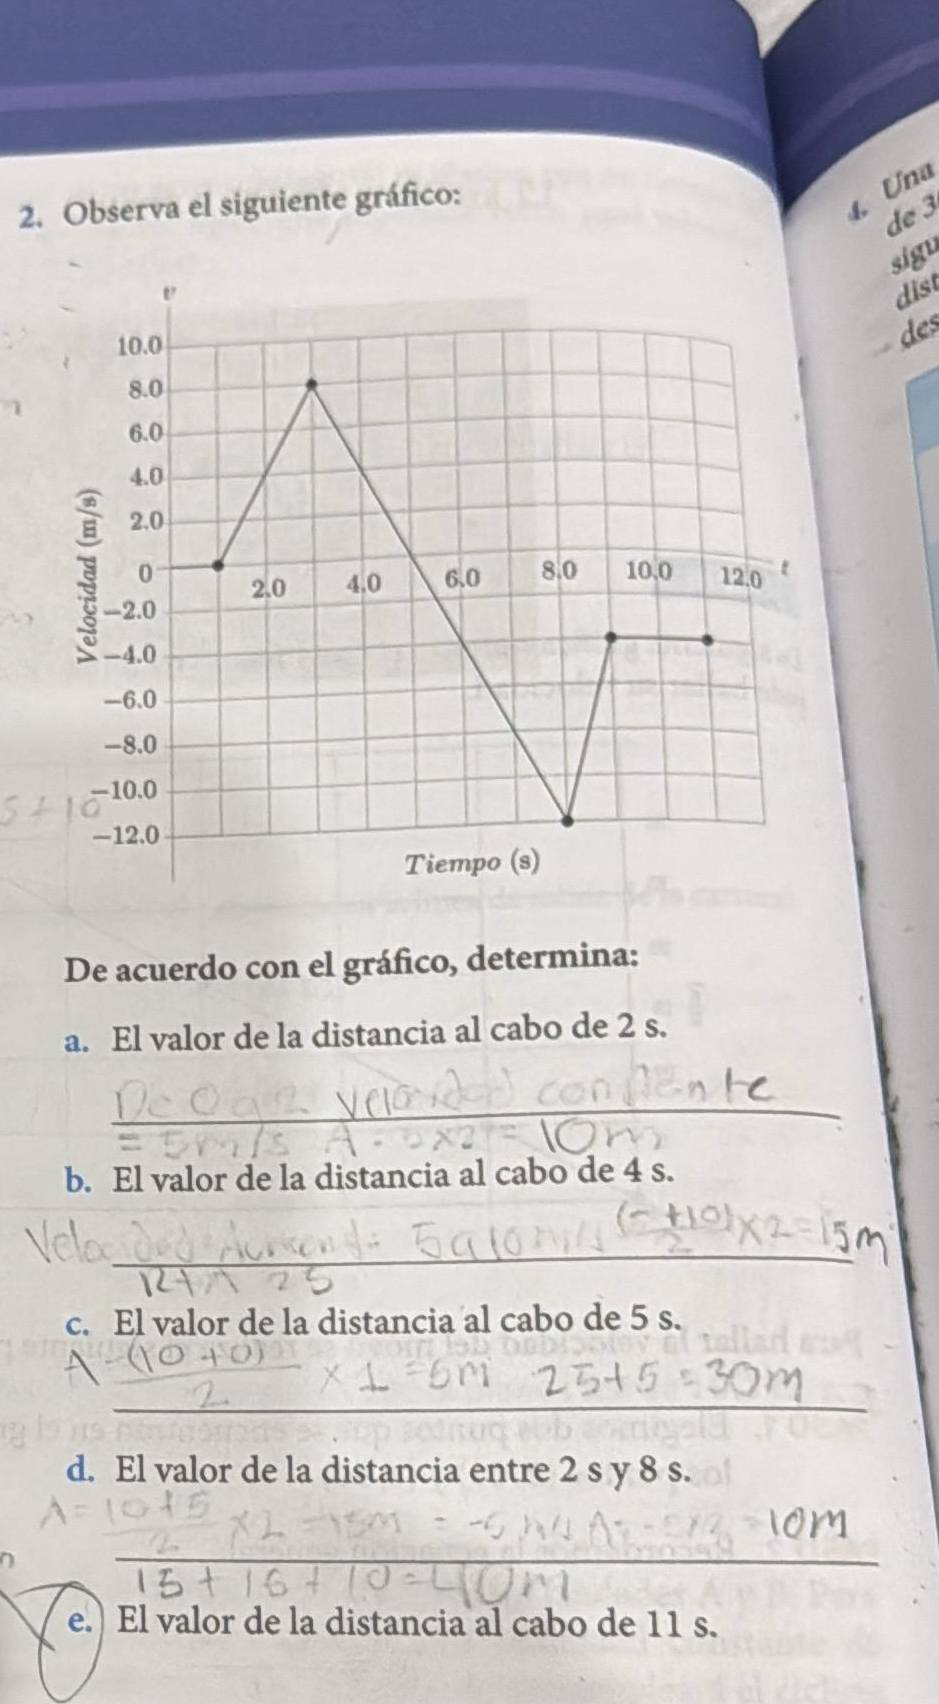 2. Observa el siguiente gráfico:
4. Una
de 3
sigu
dist
des
v
10.0
8.0
6.0
4.0
2.0
0
2,0 4,0 6,0 8,0 10,0 12,0 t
−2.0
−4.0
−6.0
−8.0
−10.0
−12.0
Velocidad (m/s)
Tiempo (s)
5+10
De acuerdo con el gráfico, determina:
a. El valor de la distancia al cabo de 2 s.
De 0 a 2 velocidad
= 5m/s A = 5x2 = 10m
b. El valor de la distancia al cabo de 4 s.
Velocidad 5 a 10 m/s +10) x2=15m
25
c. El valor de la distancia al cabo de 5 s.
A = (10+0) x 1 = 5m 25+5=30m
2
d. El valor de la distancia entre 2 s y 8 s.
A = 10+5 x2 = 15m = -5 m/s A = -5x2 = 10m
2
15+15+10=40m
e. El valor de la distancia al cabo de 11 s.